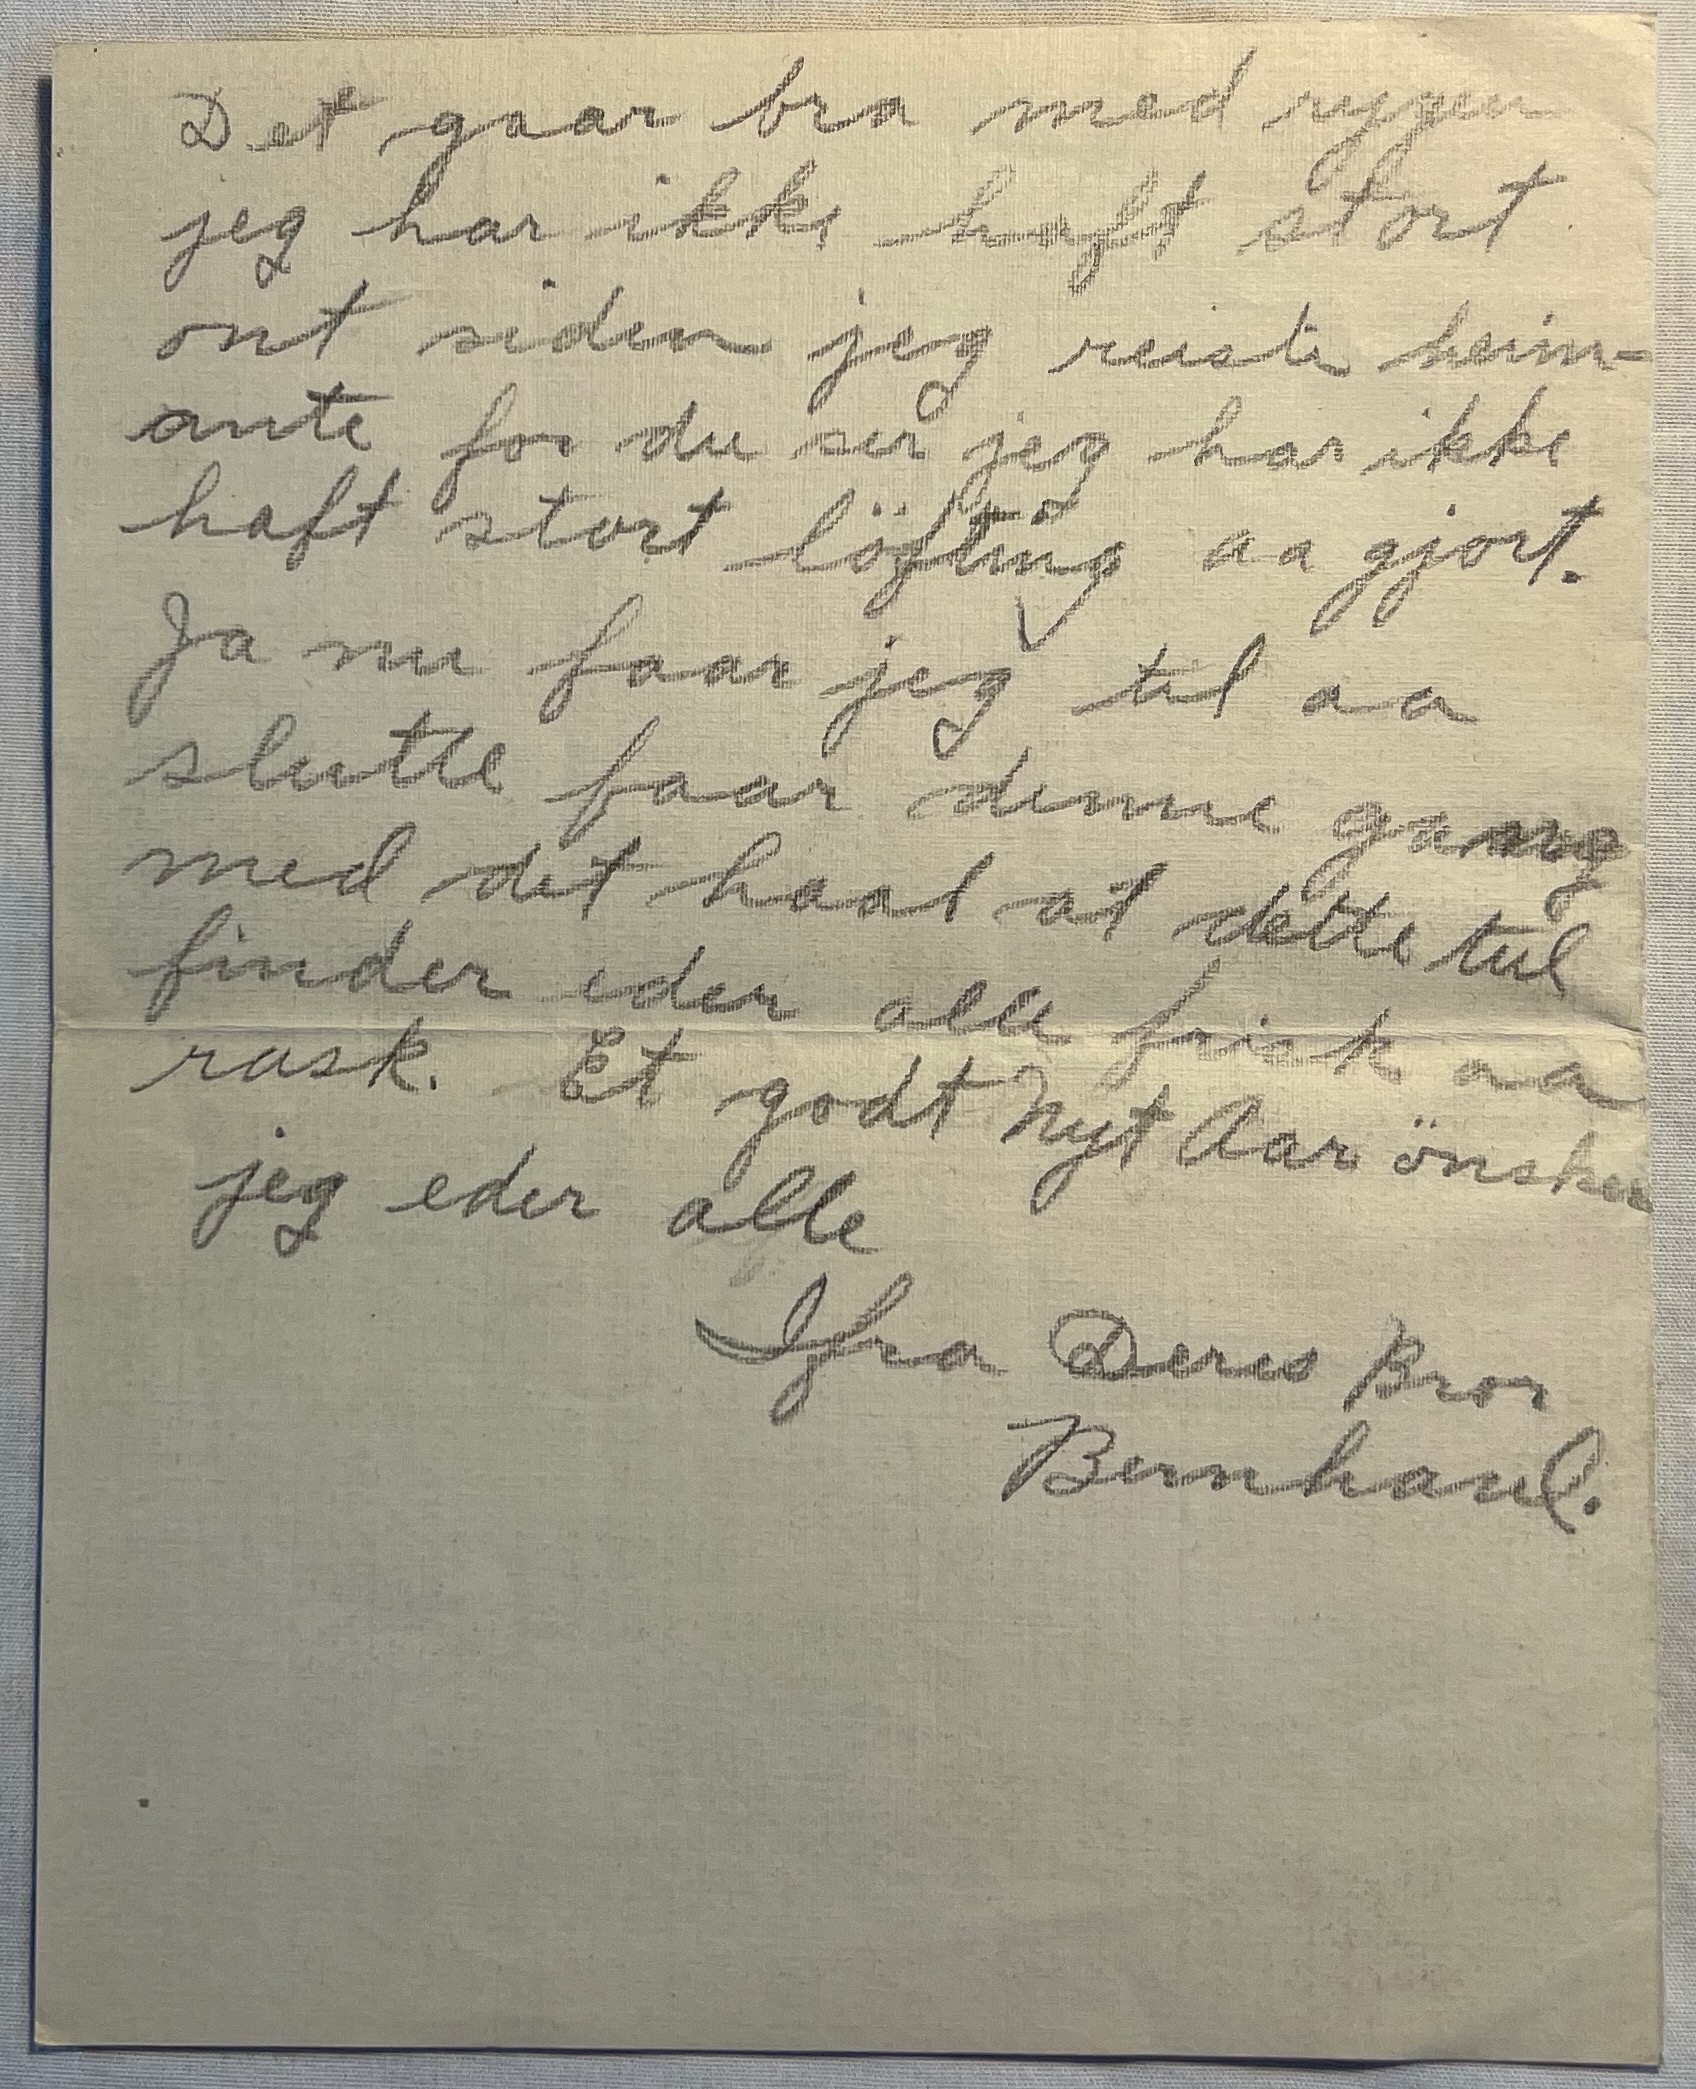 Det gaar bra med ryggen
jeg har ikke haft stort
ont siden jeg reiste heim-
ante for du ser jeg har ikke
haft stort löfting aa gjort.
Ja nu faar jeg til aa
slutte faar denne gang
med det haab at dette
finder eder alle frisk aa
rask. Et godt Nyt Aar önsker
jeg eder alle
Ifra Deres Bror
Bernhard.